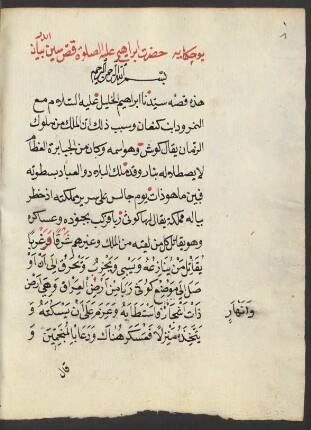 بو حكايه حضرت ابراهيم عليه الصلوة قصه سين بيان
الله
بسم الله الرحمن الرحيم
هذه قصه سيدنا ابراهيم الخليل عليه السلام مع
النمرود ابن كنعان وسبب ذلك ان الملك من ملوك
الزمان يقال كوش وهو اسمه وكان من الجبابرة العظام
لا يصطلا له بنار وقد ملك البلاد والعباد بسطوته
فبين ما هو ذات يوم جالس على سرير مملكته اذ خطر
بباله مملكة يقال لها كوثى ربا فركب بجنوده وعساكره
وهو يقاتل كل من لقيه من الملوك وغيرهم شرقا وغربا
يقاتل من ينازعه ويسبي ويخرب ويحرق الى ان و
صل الى موضع كوثى ربا من ارض العراق وهي ارض
ذات اشجار فاستطابه وعزم على ان يسكنه و
وانهار
يتخذه منزلا فعسكر هناك ودعا بالمنجمين و
قال